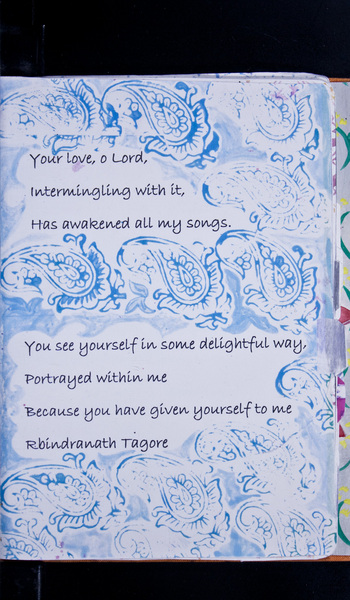 Your love, o Lord,
Intermingling with it,
Has awakened all my songs.
You see yourself in some delightful way,
Portrayed within me
Because you have given yourself to me
Rbindranath Tagore